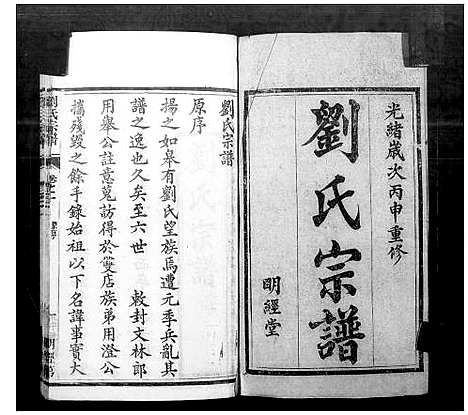 光緒歲次丙申重修
劉氏宗譜
明經堂
劉氏宗譜
原序
揚之如皋有劉氏望族焉遭元季兵亂其
譜之逸也久矣至六世 敕封文林郎
用舉公註意蒐訪得於雙店族弟用澄公
攜殘毀之餘手錄始祖以下名諱事實大